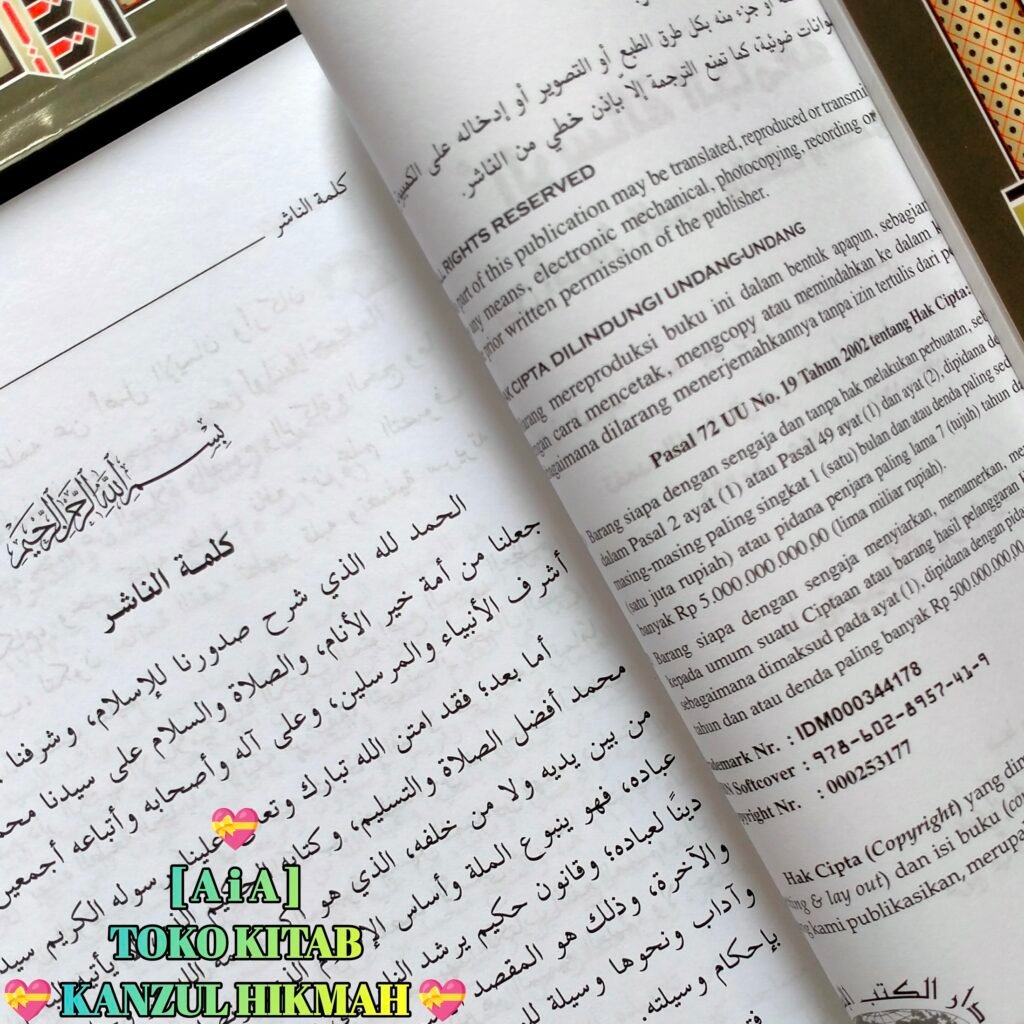 أو جزء منه بكل طرق الطبع أو التصوير أو إدخاله على
ضوئية، كما تمنع الترجمة إلّا بإذن خطي من الناشر.
RIGHTS RESERVED
part of this publication may be translated, reproduced or
any means, electronic mechanical, photocopying, recording or
prior written permission of the publisher.
CIPTA DILINDUNGI UNDANG-UNDANG
mereproduksi buku ini dalam bentuk apapun, sebagian
cara mencetak, mengcopy atau memindahkan ke dalam
dilarang menerjemahkannya tanpa izin tertulis dari
Pasal 72 UU No. 19 Tahun 2002 tentang Hak Cipta:
Barang siapa dengan sengaja dan tanpa hak melakukan perbuatan,
dalam Pasal 2 ayat (1) atau Pasal 49 ayat (1) dan ayat (2), dipidana
masing-masing paling singkat 1 (satu) bulan dan atau denda paling
(satu juta rupiah) atau pidana penjara paling lama 7 (tujuh) tahun
banyak Rp 5.000.000.000,00 (lima miliar rupiah).
Barang siapa dengan sengaja menyiarkan, memamerkan,
kepada umum suatu Ciptaan atau barang hasil pelanggaran
sebagaimana dimaksud pada ayat (1), dipidana dengan
tahun dan atau denda paling banyak Rp 500.000.000,00
Nr. : IDM000344178
Softcover : 978-602-8957-41-9
Nr. : 000253177
Hak Cipta (Copyright) yang
& lay out) dan isi buku
kami publikasikan,
دار الكتب
كلمة الناشر
بسم الله الرحمن الرحيم
كلمة الناشر
الحمد لله الذي شرح صدورنا للإسلام، وشرفنا
جعلنا من أمة خير الأنام، والصلاة والسلام على سيدنا
أشرف الأنبياء والمرسلين، وعلى آله وأصحابه وأتباعه أجمعين
أما بعد؛ فقد امتن الله تبارك علينا رسوله الكريم
محمد أفضل الصلاة والتسليم،
من بين يديه ولا من خلفه، الذي هو
عباده، فهو ينبوع الملة وأساس
دينًا لعباده؛ وقانون حكيم يرشد
والآخرة، وذلك هو المقصد
وآداب ونحوها وسيلة
بإحكام وسيلته.
💝
[AiA]
TOKO KITAB
💝 KANZUL HIKMAH 💝